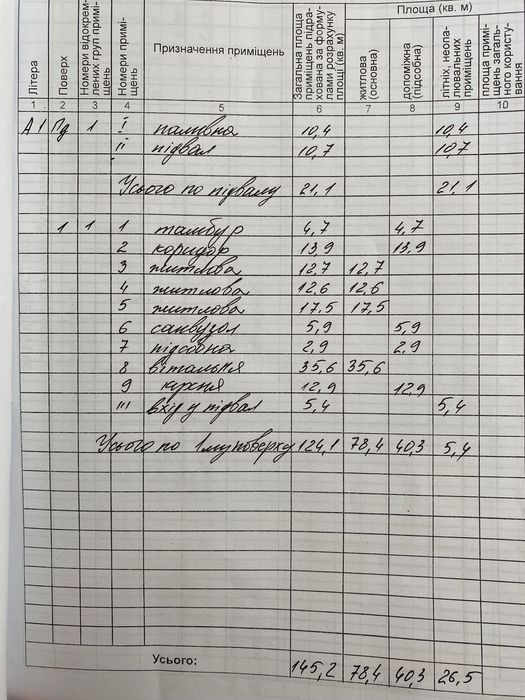 Літера
Поверх
Номери відокрем-
лених груп примі-
щень
Номери примі-
щень
Призначення приміщень
Загальна площа
приміщень підра-
хована за форму-
лами розрахунку
площі (кв. м)
Площа (кв. м)
житлова
(основна)
допоміжна
(підсобна)
літніх, неопа-
лювальних
приміщень
площа примі-
щень загаль-
ного користу-
вання
1 2 3 4 5 6 7 8 9 10
А1 Пд 1 I паливна 10,4 10,4
II підвал 10,7 10,7
Усього по підвалу 21,1 21,1
1 1 1 тамбур 4,7 4,7
2 коридор 13,9 13,9
3 житлова 12,7 12,7
4 житлова 12,6 12,6
5 житлова 17,5 17,5
6 санвузол 5,9 5,9
7 підсобна 2,9 2,9
8 вітальня 35,6 35,6
9 кухня 12,9 12,9
III вхід у підвал 5,4 5,4
Усього по 1му поверху 124,1 78,4 40,3 5,4
Усього: 145,2 78,4 40,3 26,5